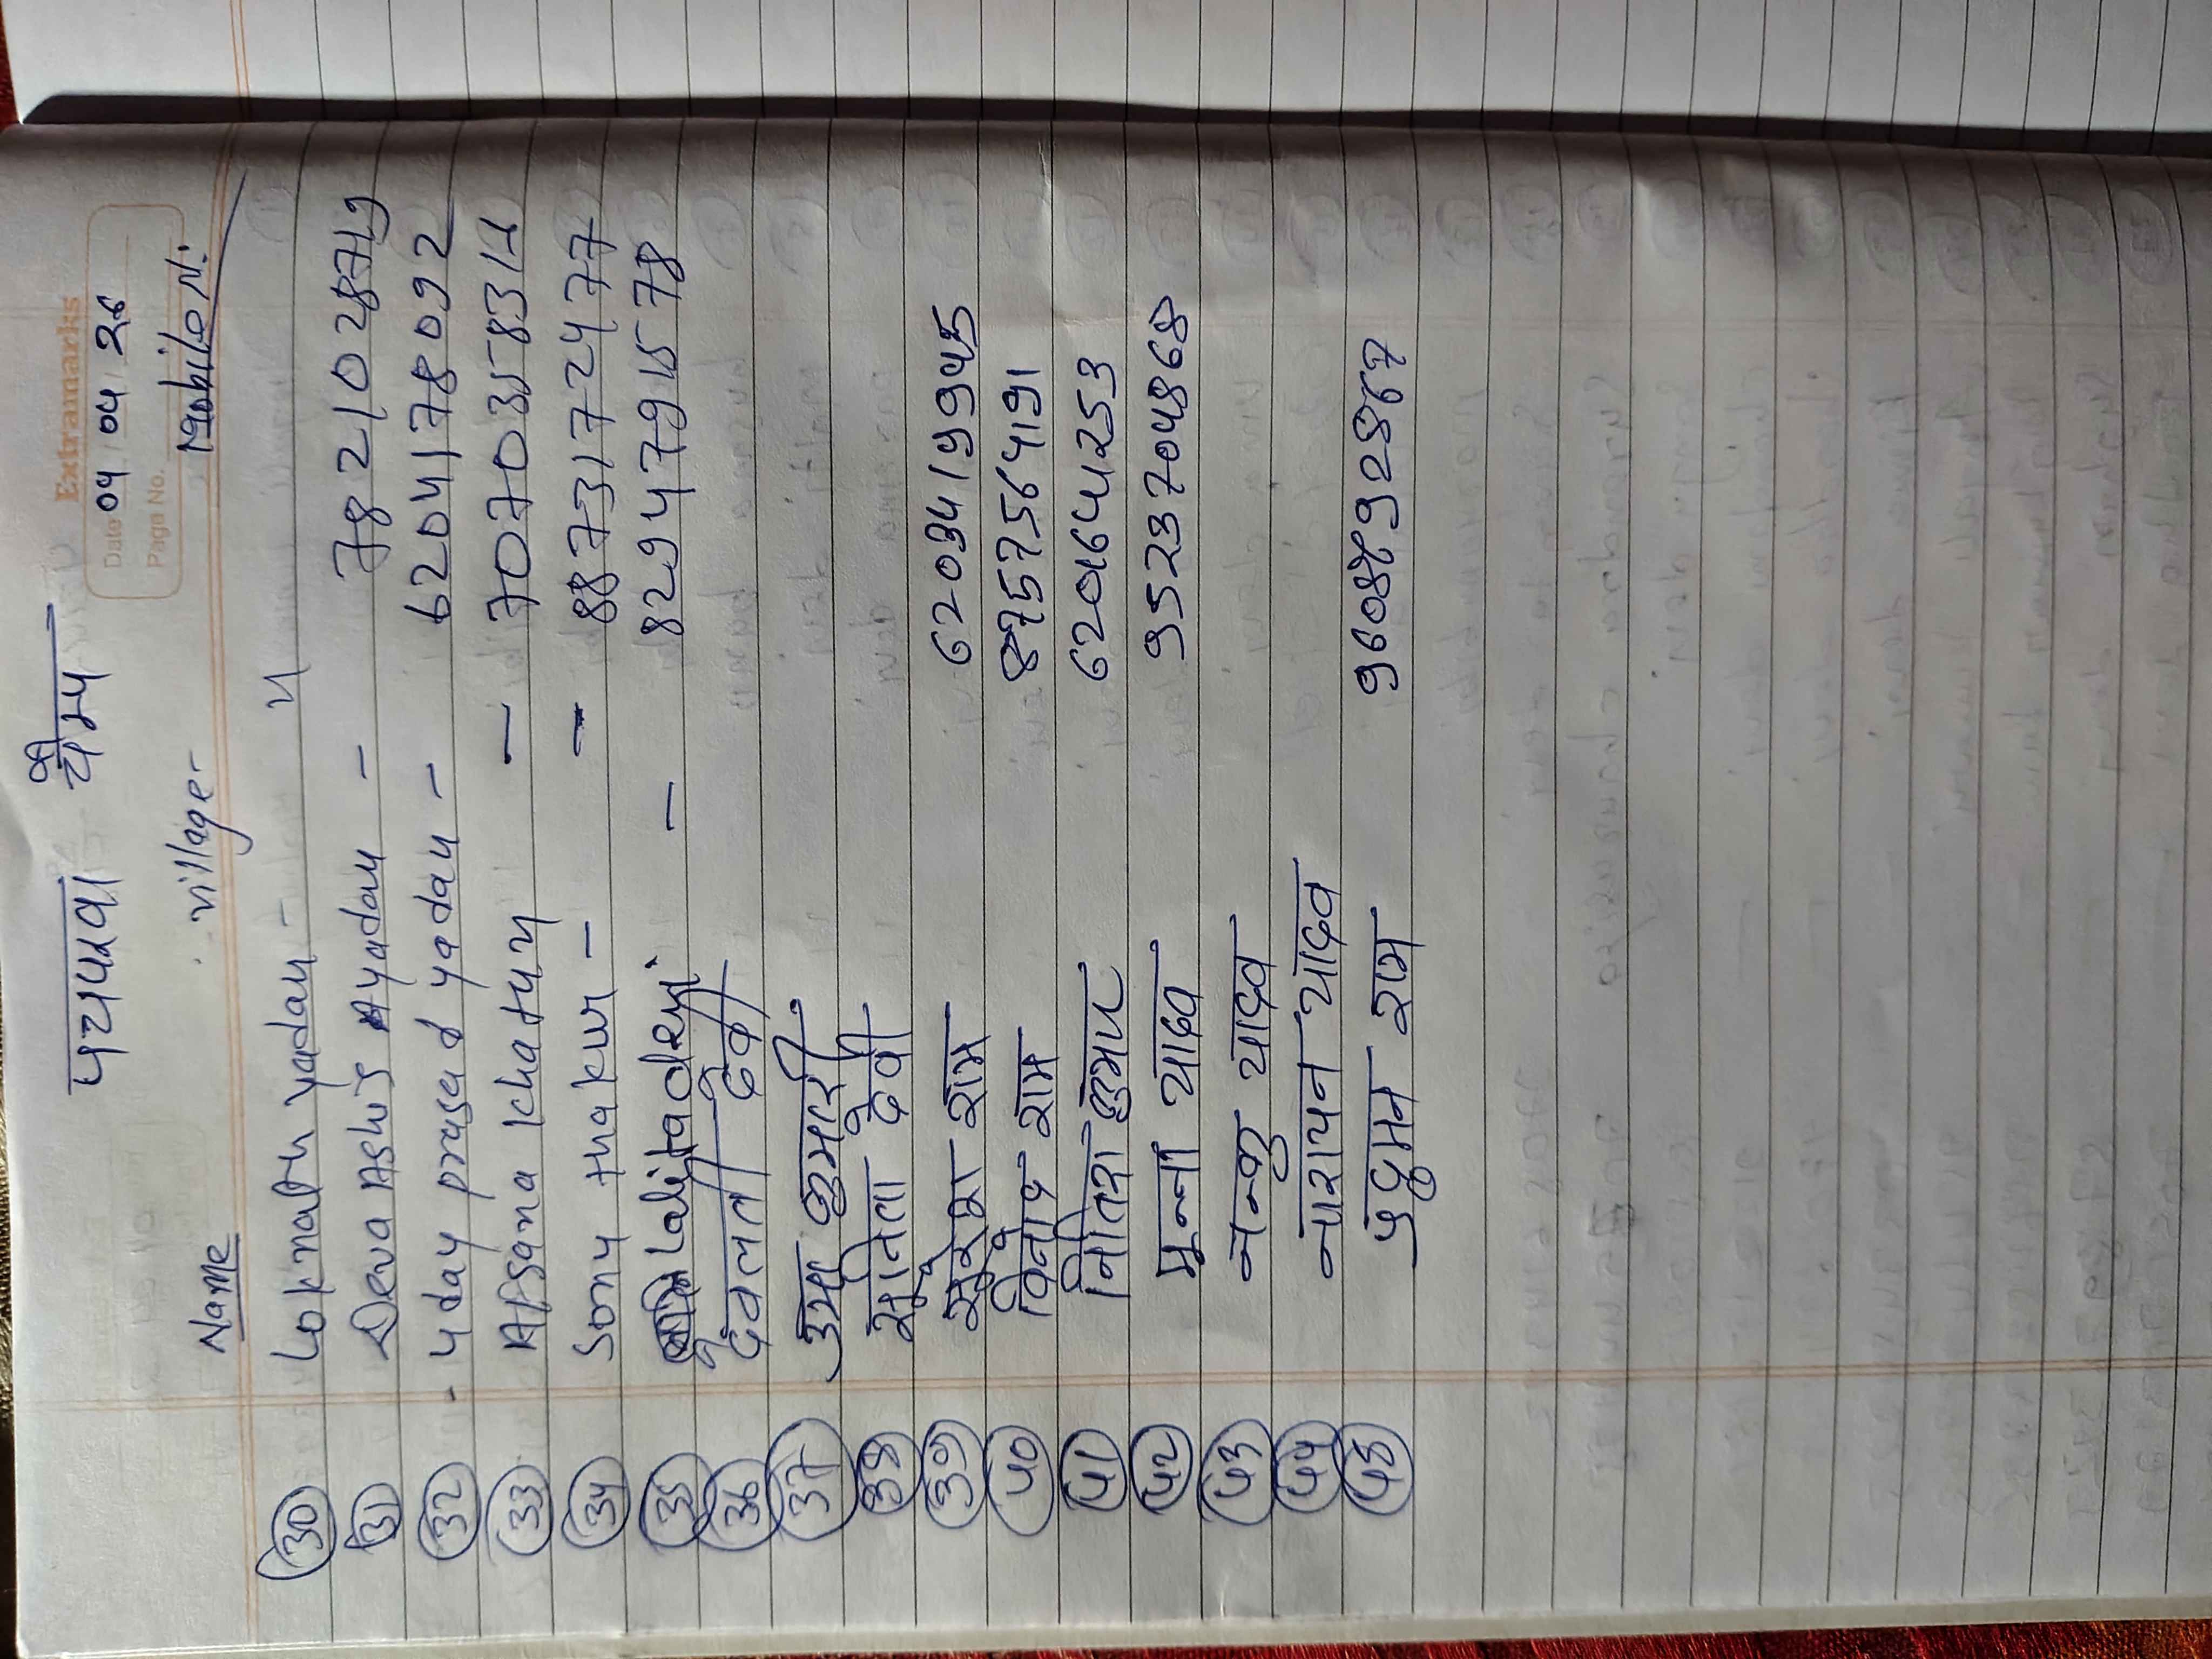 पचपवा चैम्प
Extramarks
Date 04 04 26
Page No.
Name village- Mobile N.
30 Loknath yadav - ч
31 Deva Ashis yadav - 7821028719
32 - uday prasad yadav - 6204178092
33 Afsana khatun - 7070358314
34 Sony thakur - - 8873172477
35 Lalita devi - 8294791578
36 देवलती देवी
37 उमा कुमारी
38 सुनिता देवी
39 सुरेश राम 6203419945
40 विनोद राम 8757564191
41 नितिश कुमार 6201644253
42 मून्ना यादव 9523704868
43 नन्कु यादव
44 नारायन यादव
45 प्रदुमन राम 9608892567